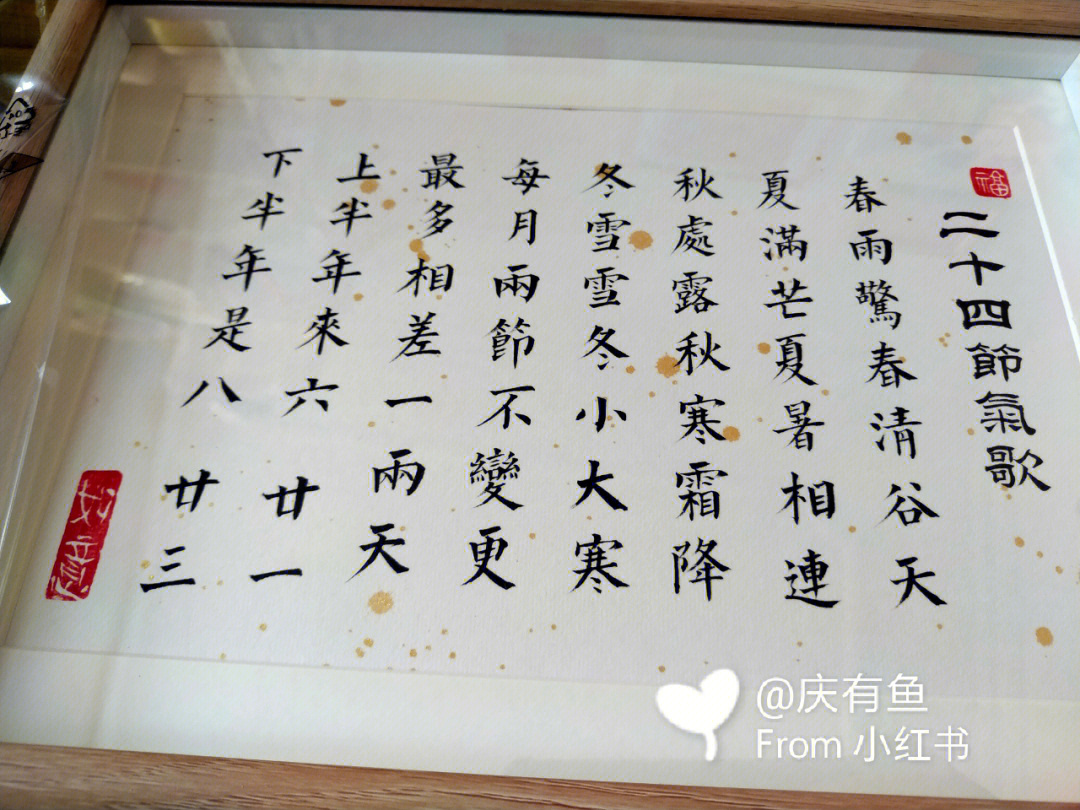 福
二十四節氣歌
春雨驚春清谷天
夏滿芒夏暑相連
秋處露秋寒霜降
冬雪雪冬小大寒
每月兩節不變更
最多相差一兩天
上半年來六廿一
下半年是八廿三
@庆有鱼
From 小红书